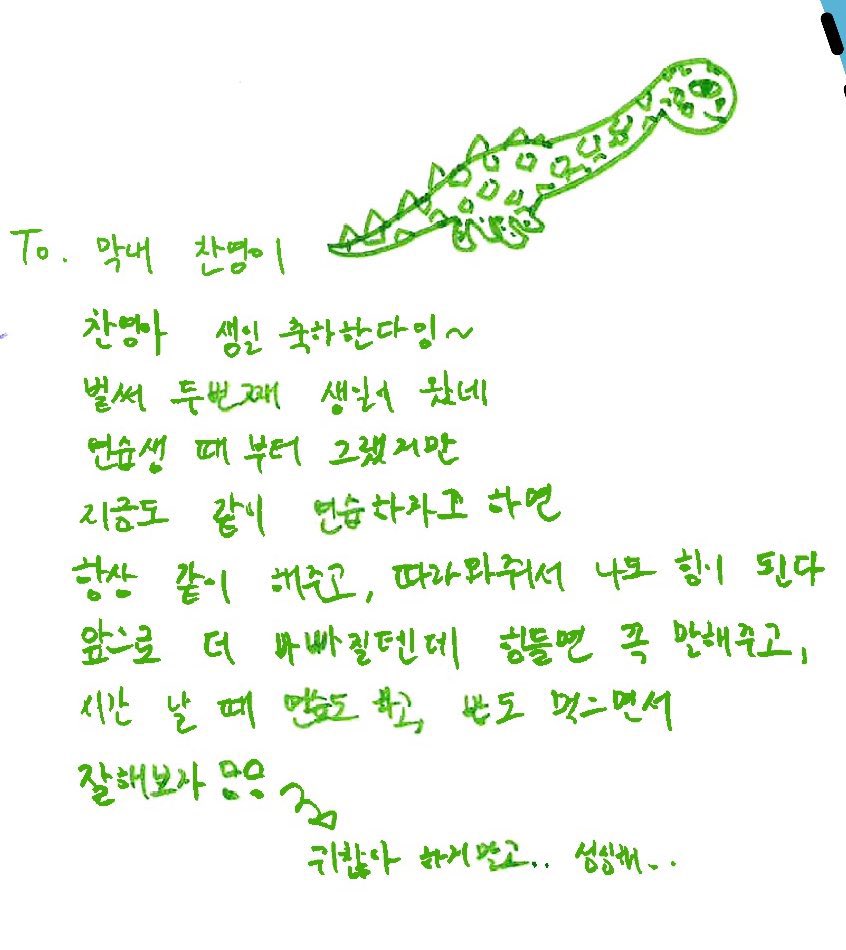 To. 막내 찬영이
찬영아 생일 축하한다잉~
벌써 두번째 생일이 왔네
연습생 때 부터 그랬지만
지금도 같이 연습하자고 하면
항상 같이 해주고, 따라와줘서 나도 힘이 된다
앞으로 더 바빠질텐데 힘들면 꼭 말해주고,
시간 날 때 연습도 하고, 밥도 먹으면서
잘해보자
귀찮아 하지말고.. 성실해..